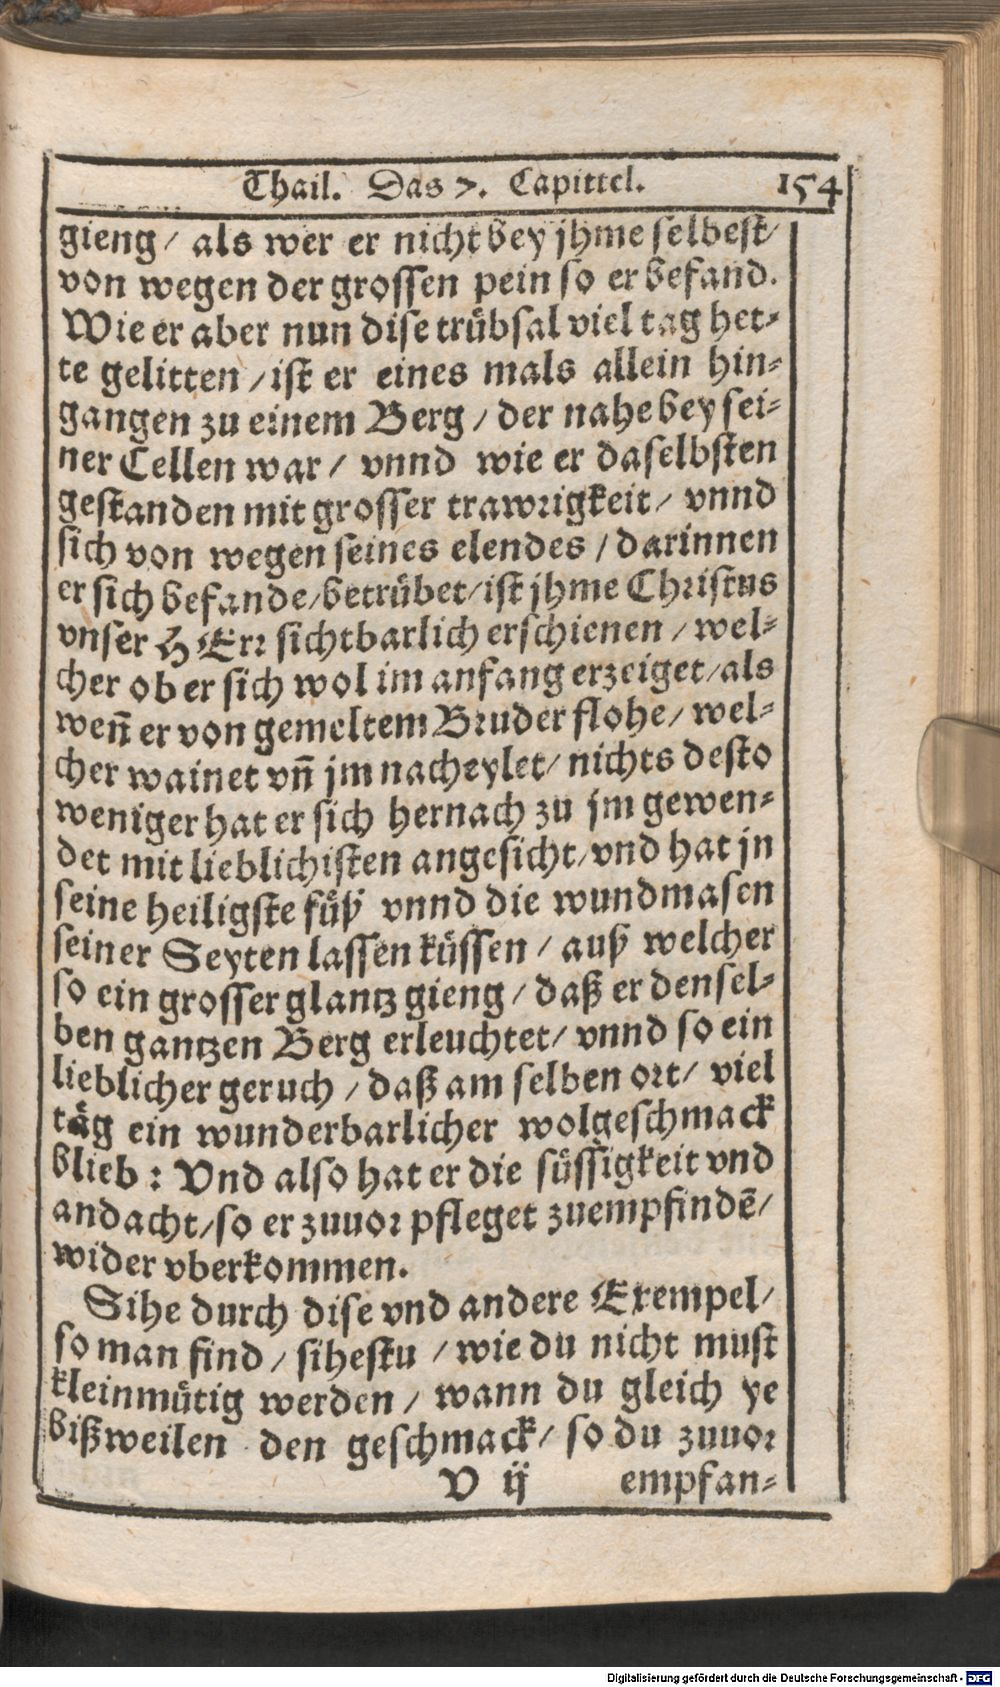 Thail. Das 7. Capittel. 154
gieng/ als wer er nicht bey jhme selbest/
von wegen der grossen pein so er befand.
Wie er aber nun dise trübsal viel tag het-
te gelitten/ ist er eines mals allein hin-
gangen zu einem Berg/ der nahe bey sei-
ner Cellen war/ vnnd wie er daselbsten
gestanden mit grosser trawrigkeit/ vnnd
sich von wegen seines elendes/ darinnen
er sich befande/ betrübet/ ist jhme Christus
vnser HErr sichtbarlich erschienen/ wel-
cher ob er sich wol im anfang erzeiget/ als
weñ er von gemeltem Bruder flohe/ wel-
cher wainet vñ jm nacheylet/ nichts desto
weniger hat er sich hernach zu jm gewen-
det mit lieblichisten angesicht/ vnd hat jn
seine heiligste füß vnnd die wundmasen
seiner Seyten lassen küssen/ auß welcher
so ein grosser glantz gieng/ daß er densel-
ben gantzen Berg erleuchtet/ vnnd so ein
lieblicher geruch/ daß am selben ort/ viel
täg ein wunderbarlicher wolgeschmack
blieb: Vnd also hat er die süssigkeit vnd
andacht/ so er zuuor pfleget zuempfindē/
wider vberkommen.
Sihe durch dise vnd andere Exempel/
so man find/ sihestu/ wie du nicht must
kleinmütig werden/ wann du gleich ye
bißweilen den geschmack/ so du zuuor
V ij empfan-
Digitalisierung gefördert durch die Deutsche Forschungsgemeinschaft - DFG